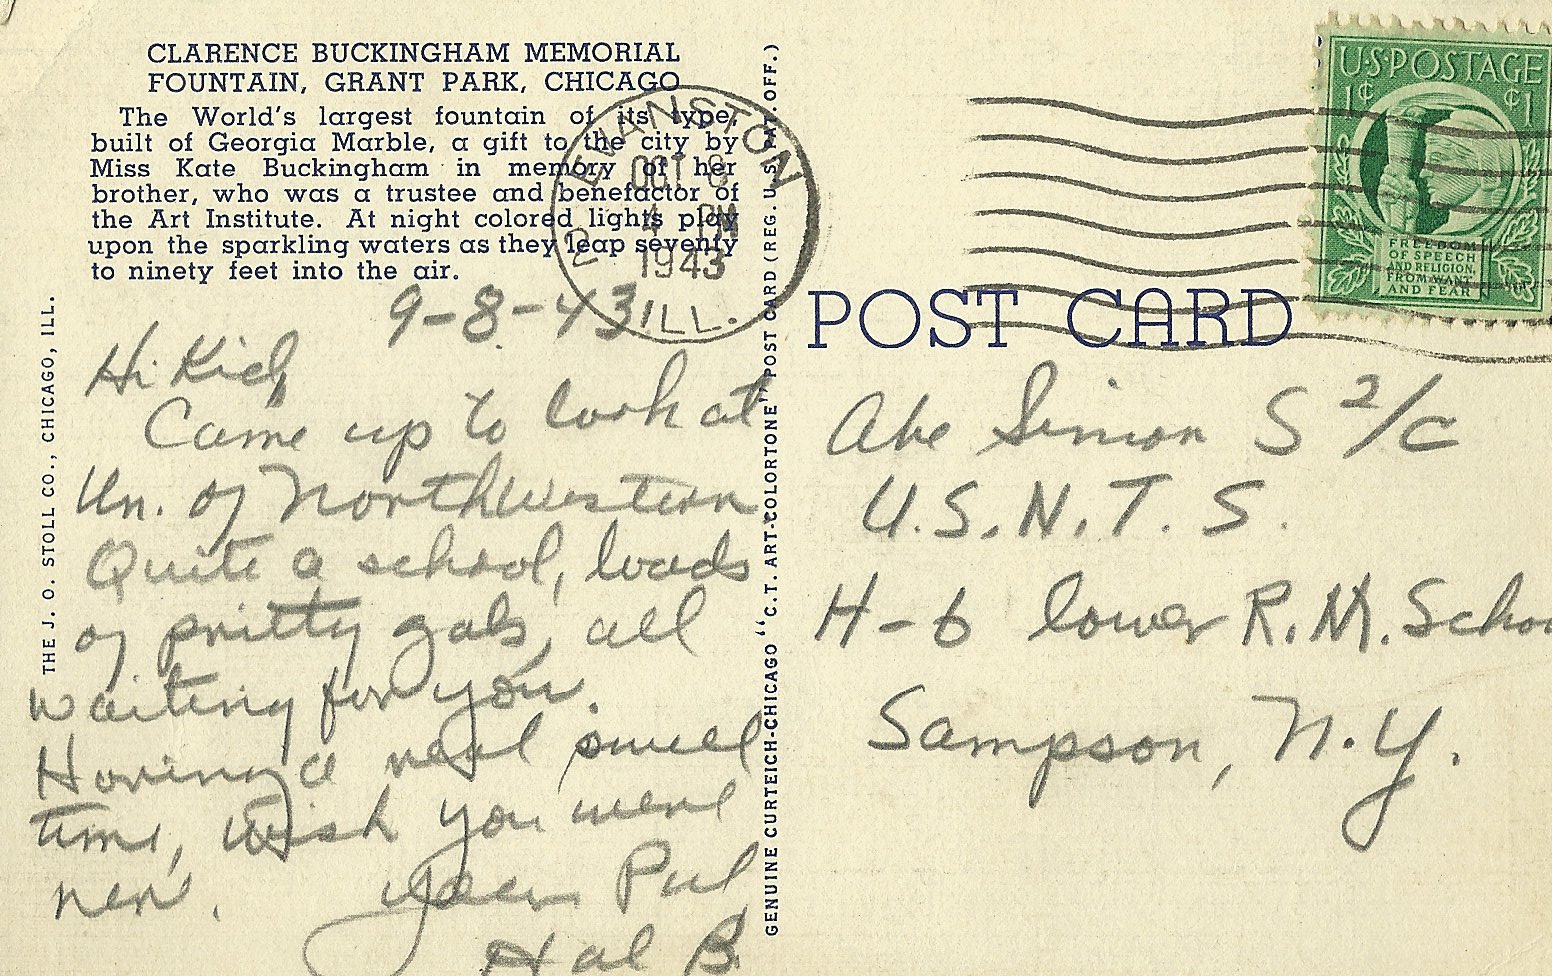 CLARENCE BUCKINGHAM MEMORIAL
FOUNTAIN, GRANT PARK, CHICAGO
The World's largest fountain of its type,
built of Georgia Marble, a gift to the city by
Miss Kate Buckingham in memory of her
brother, who was a trustee and benefactor of
the Art Institute. At night colored lights play
upon the sparkling waters as they leap seventy
to ninety feet into the air.
THE J. O. STOLL CO., CHICAGO, ILL.
9-8-43
Hi Kid,
Came up to look at
Un. of Northwestern
Quite a school, loads
of pritty gals, all
waiting for you.
Having a real swell
time, wish you were
here.
Your Pal
Hal B.
GENUINE CURTEICH-CHICAGO "C.T. ART-COLORTONE" POST CARD (REG. U.S. PAT. OFF.)
EVANSTON
OCT 8
4 PM
1943
2
ILL.
U·S·POSTAGE
1¢ ¢1
FREEDOM
OF SPEECH
AND RELIGION,
FROM WANT
AND FEAR
POST CARD
Abe Simon S 2/c
U.S.N.T.S.
H-6 lower R.M. Schoo
Sampson, N.Y.